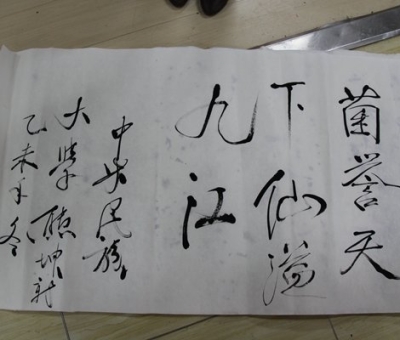 菌誉天
下仙溢
九江
中央民族
大学
乙未年冬